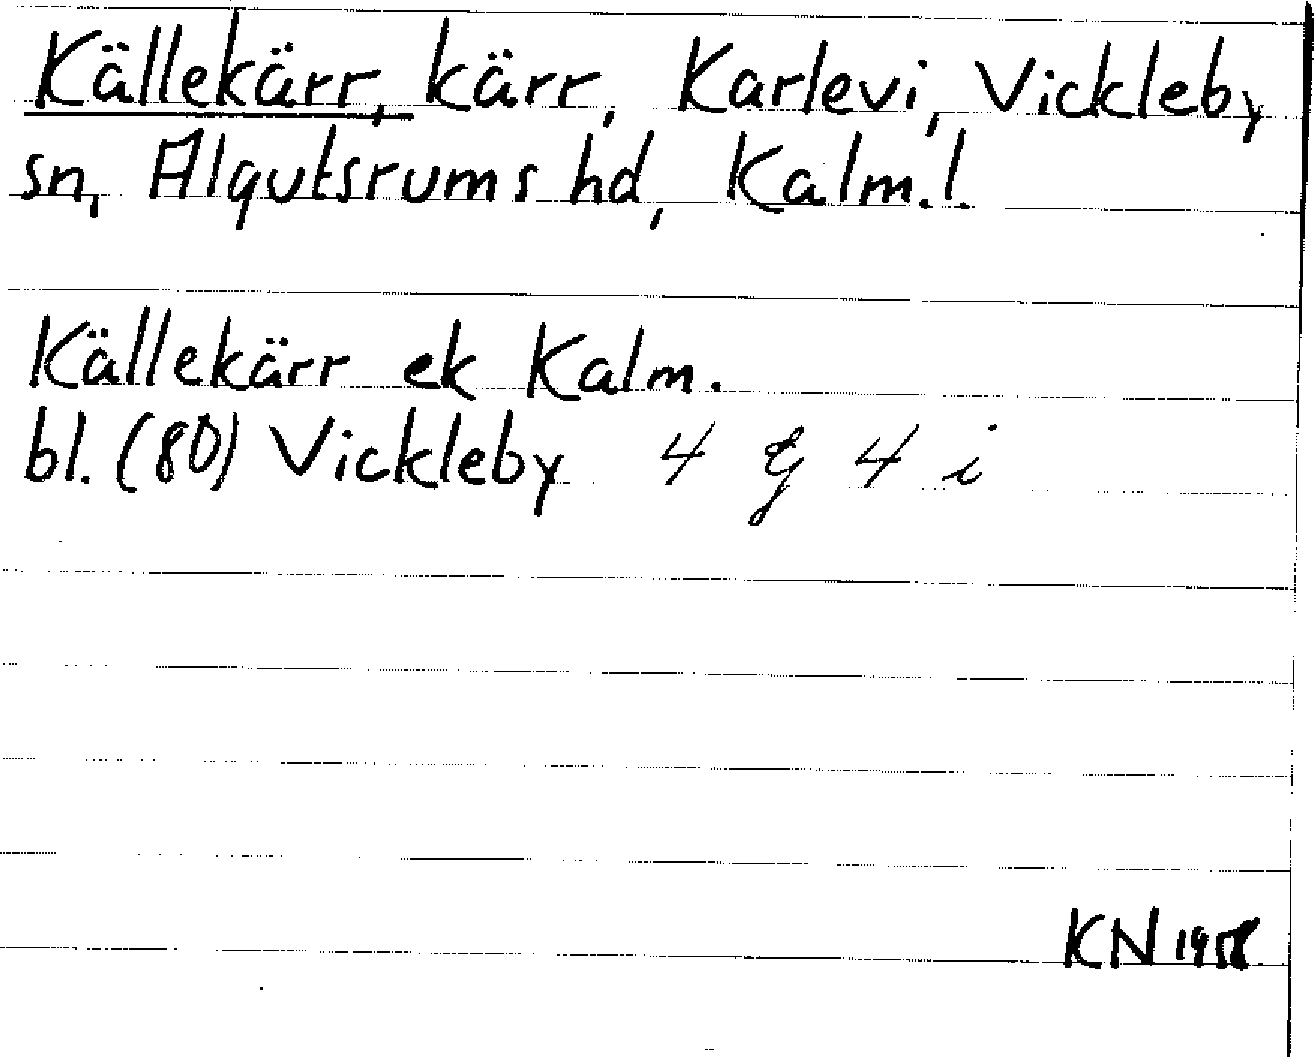 Källekärr, kärr, Karlevi, Vickleby
sn, Algutsrums hd, Kalm.l.
Källekärr ek Kalm.
bl. (80) Vickleby 4 g 4 i
KN 1958